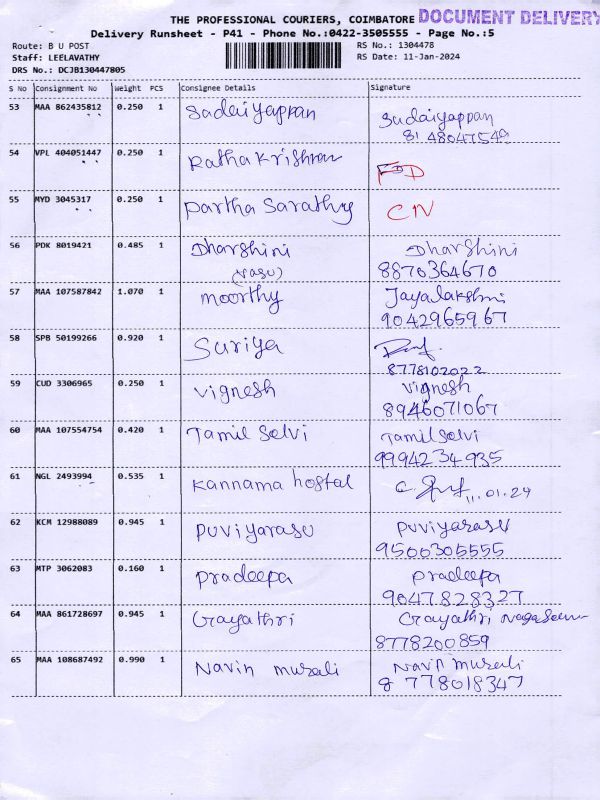 THE PROFESSIONAL COURIERS, COIMBATORE DOCUMENT DELIVERY
Delivery Runsheet - P41 - Phone No.:0422-3505555 - Page No.:5
Route: B U POST RS No.: 1304478
Staff: LEELAVATHY RS Date: 11-Jan-2024
DRS No.: DCJB130447805
S No Consignment No Weight PCS Consignee Details Signature
53 MAA 862435812 0.250 1 Sadaiyappan Sudaiyappan
81 48047549
54 VPL 404051447 0.250 1 Rathakrishnan
55 MYD 3045317 0.250 1 Partha Sarathy CN
56 PDK 8019421 0.485 1 Dharshini Dharshini
(vasu) 8870364670
57 MAA 107587842 1.070 1 moorthy Jayalakshmi
9042965967
58 SPB 50199266 0.920 1 Suriya
8778102022
59 CUD 3306965 0.250 1 vignesh vignesh
8946071067
60 MAA 107554754 0.420 1 Tamil Selvi Tamil Selvi
9994234935
61 NGL 2493994 0.535 1 Kannama hostal 11.01.24
62 KCM 12988089 0.945 1 Puviyarasu Puviyarasu
9500305555
63 MTP 3062083 0.160 1 Pradeepa Pradeepa
9047828327
64 MAA 861728697 0.945 1 Gayathri Gayathri
8778200859
65 MAA 108687492 0.990 1 Navin murali Navin murali
8 778018347